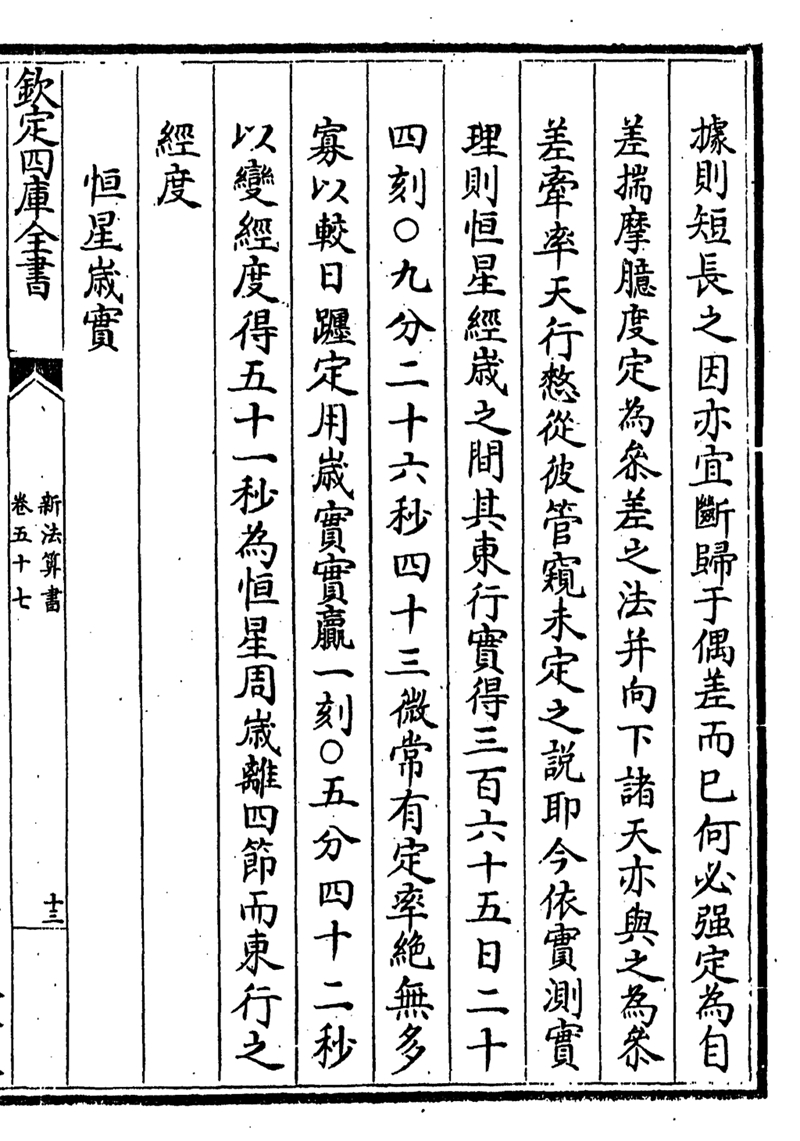 據則短長之因亦宜斷歸于偶差而已何必强定為自
差揣摩臆度定為叅差之法并向下諸天亦與之為叅
差牽率天行憗從彼管窺未定之説耶今依實測實
理則恒星經歲之間其東行實得三百六十五日二十
四刻○九分二十六秒四十三微常有定率絶無多
寡以較日躔定用歲實實贏一刻○五分四十二秒
以變經度得五十一秒為恒星周歲離四節而東行之
經度
恒星歲實
欽定四庫全書
新法算書
卷五十七
十三